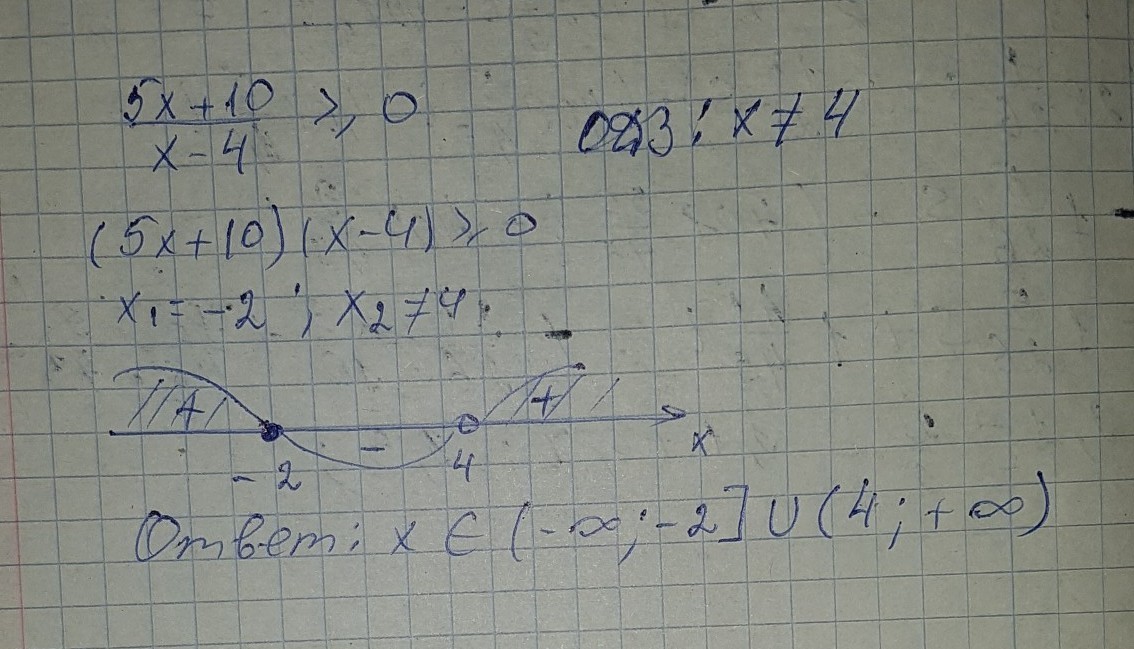 5x+10 / x-4 ⩾ 0 ОДЗ: x≠4
(5x+10)(x-4) ⩾ 0
x₁=-2; x₂≠4
+ - +
-2 4 x
Ответ: x ∈ (-∞;-2]∪(4;+∞)